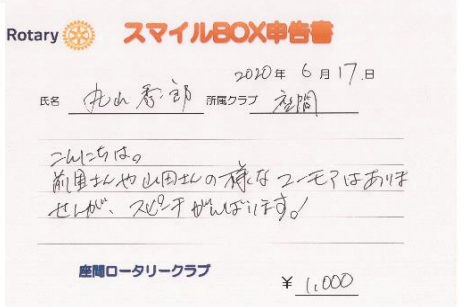 Rotary スマイルBOX申告書
2020年 6月17日
氏名 丸山 所属クラブ 座間
こんにちは。
前田さんや山田さんの様なユーモアはありま
せんが、スピーチがんばります!
座間ロータリークラブ
¥ 1,000